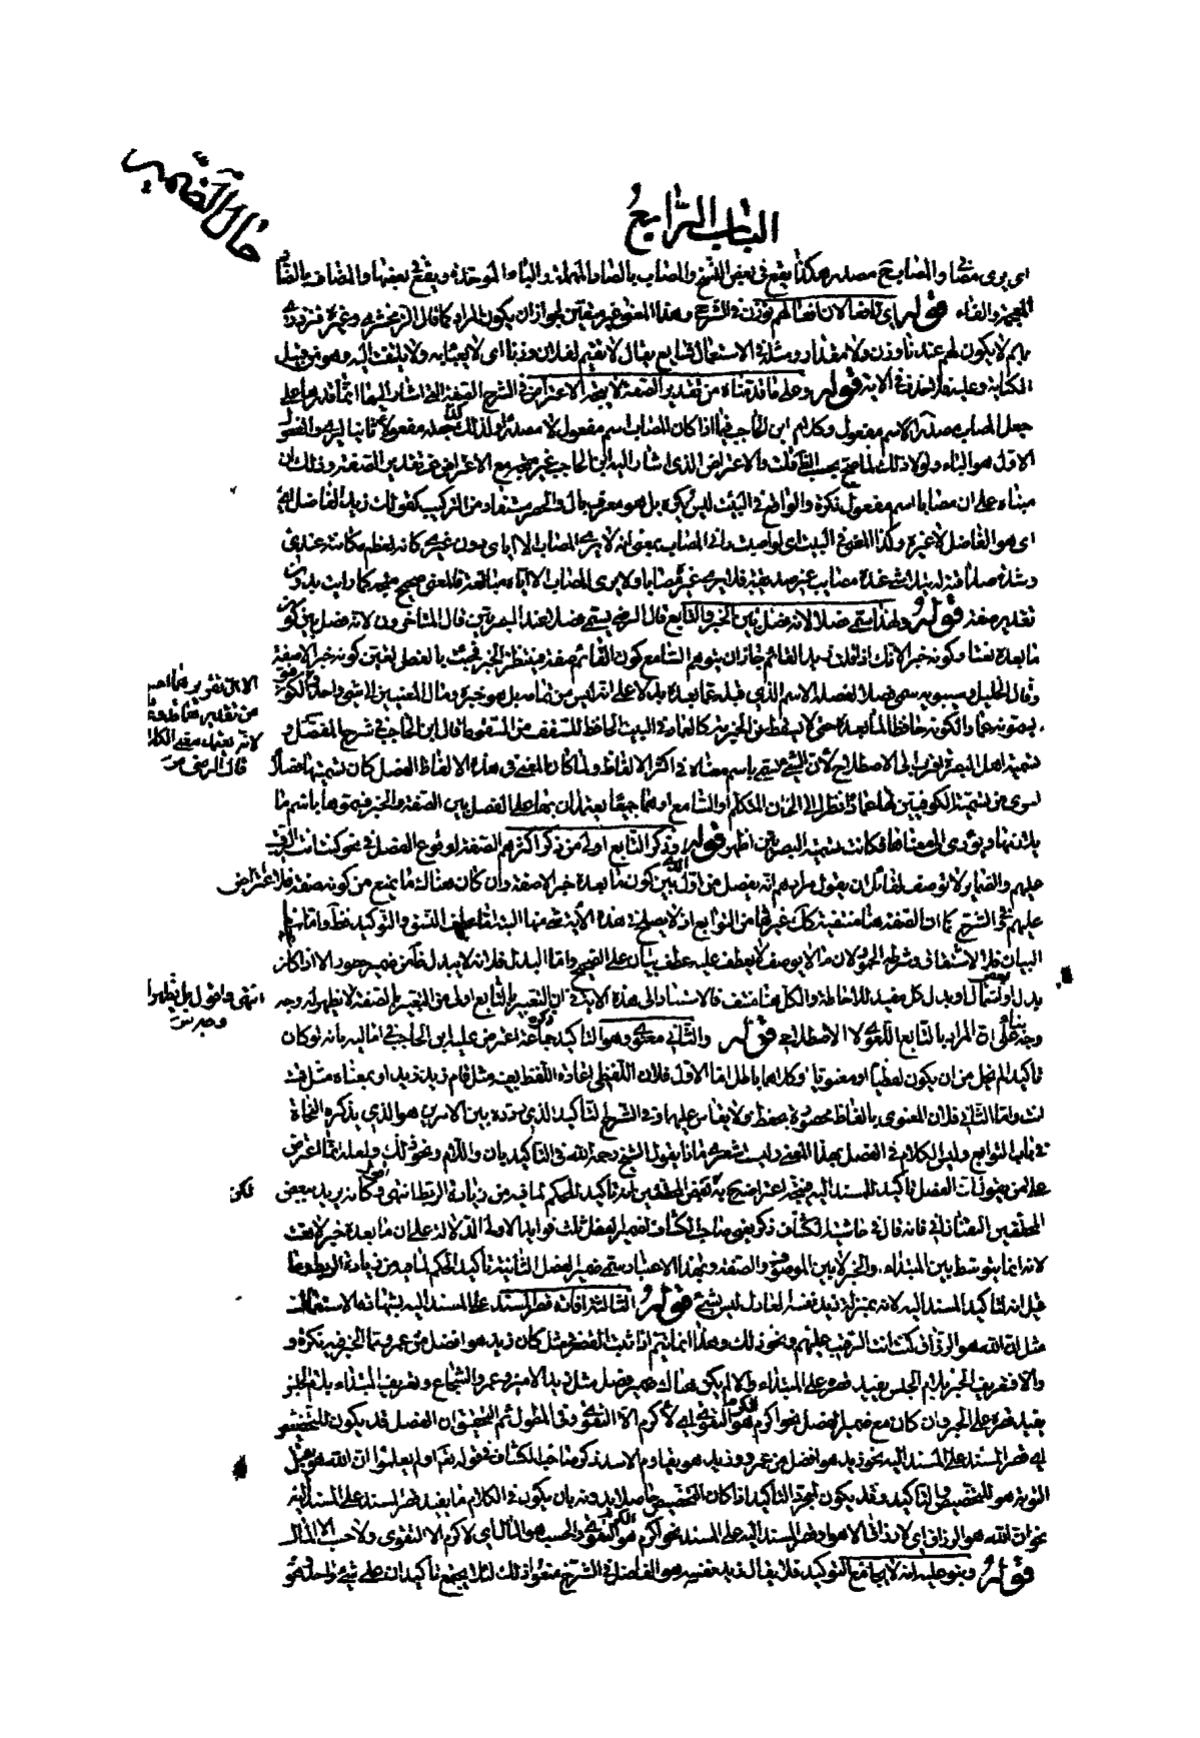 الباب الرابع
حال الضمير
اى يرى مضا والمصابح مصدر هكذا يقع فى بعض النسخ والمصاب بالصاد المهملة والباء الموحدة ويقع فى بعضها والمضاف بالضاد
المعجمة والفاء قوله اى نافعا لان نافعا لهم توزن فى الشرح وهذا المعنى غير متعين لجواز ان يكون المراد كما قال الزمخشرى وغيره فنزدرى
بهم لا يكون لهم عندنا وزن ولا مقدار ومثله فى الاستعمال شايع يقال لا نقيم لفلان وزنا اى لا يعبأ به ولا يلتفت اليه وهو من قبيل
الكناية وعليه فلا حذف فى الاية قوله وعلى ما قدمناه من تقدير الصفة لا يتجه الاعتراض فى الشرح الصفة التى اشار اليها انما قدرها على
جعل المصاب مصدرا لا اسم مفعول وكلام ابن الحاجب فيما اذا كان المصاب اسم مفعول لا مصدرا ولذلك جعله مفعولا ثانيا ليرى والمفعول
الاول هو الياء ولولا ذلك لما صح بحسب قلت والاعتراض الذى اشار اليه ابن الحاجب غير متجه مع الاعراض عن تقدير الصفة وذلك لان
مبناه على ان مصابا اسم مفعول نكرة والواقع فى البيت ليس نكرة بل هو معرف بال والحصر مستفاد من التركيب كقولك زيد الفاضل اى
اى هو الفاضل لا غيره وكذا المعنى فى البيت اى لو اصبت رانى المصاب بمعنى انه لا يرى المصاب الا اياى دون غيرى كانه لعظم مكانته عندى
وشدة صداقته له يتلاشى عنده مصايب غير صديقه فلا يرى غيره مصابا ولا يرى المصاب الا اياه مبالغة فالمعنى صحيح متجه كما رايت بدون
تقدير صفة قوله ولهذا سمى فصلا لانه فصل بين الخبر والتابع قال الرضى يسمى فصلا عند البصريين قال المتاخرون لانه فصل بين كون
ما بعده نعتا وكونه خبرا لانك اذا قلت زيد القائم جاز ان يتوهم السامع كون القائم صفة فينتظر الخبر فجئت بالفصل ليتعين كونه خبرا لا صفة
وقال الخليل وسيبويه سمى فصلا لفصله الاسم الذى قبله عما بعده بدلالته على انه ليس من تمامه بل هو خبره ومآل المعنيين الى شىء واحد والكوفيون
يسمونه عمادا لكونه حافظا لما بعده حتى لا يسقط عن الخبرية كالعماد فى البيت الحافظ للسقف من السقوط قال ابن الحاجب فى شرح المفصل و
تسمية اهل البصرة اقرب الى الاصطلاح لان الشىء يسمى باسم معناه فى اكثر الالفاظ ولما كان المعنى فى هذه الالفاظ الفصل كان تسميتها فصلا
اسوى من تسمية الكوفيين لها عمادا نظرا الى ان المتكلم او السامع او هما جميعا يعتمدان بها على الفصل بين الصفة والخبر فسموها باسم ما
يلازمها ويؤدى الى معناها فكانت تسمية البصريين اظهر قوله وذكر التابع اولى من ذكر اكثرهم الصفة لوقوع الفصل فى نحو كنت انت الرقيب
عليهم والضماير لا توصف لقائل ان يقول مرادهم انه يفصل من اول الامر بين كون ما بعده خبرا لا صفة وان كان هناك ما يمنع من كونه صفة فلا اعتراض
عليهم فى الشرح كما ان الصفة هنا منتفية كذلك غيرها من التوابع اذ لا يصلح فى هذه الآية شىء منها البتة اما عطف النسق والتوكيد فظ واما عطف
البيان فلا لاشتقاقه وشرطه الجمود لان ما لا يوصف لا يعطف عليه عطف بيان على الصحيح واما البدل فلانه لا يبدل ظاهر من ضمير حضور الا اذا كان
بدل بعض او اشتمال او بدل كل مفيد للاحاطة والكل هنا منتف فالاستناد الى هذه الآية فى ان التعبير بالتابع اولى من التعبير بالصفة لا يظهر له وجه
وجه على ان المراد بالتابع اللغوى لا الاصطلاحى قوله والثانى معنوى وهو التاكيد ذكره جماعة اعترض عليه ابن الحاجب فى اماليه بانه لو كان
تاكيدا لم يخل من ان يكون لفظيا او معنويا وكلاهما باطل اما الاول فلان اللفظى اعادة اللفظ بعينه مثل قام زيد زيد او بمعناه مثل قمت
انت واما الثانى فلان المعنوى بالفاظ محصورة تحفظ ولا يقاس عليها وفى الشرح التاكيد الذى ردده بين الامرين هو الذى يذكره النحاة
فى باب التوابع وليس الكلام فى الفصل بهذا المعنى وليت شعرى ماذا يقول الشيخ رحمه الله فى التاكيد بان واللام ونحو ذلك ولعله انما اعترض
على من يقول ان الفصل تاكيد للمسند اليه فيتجه اعتراضه صح بعض المحققين انه تاكيد للحكم لما فيه من زيادة الربط انتهى اقول وكانه يريد ببعض
المحققين التفتازانى فانه قال فى حاشية الكشاف ذكر يعنى صاحب الكشاف لضمير الفصل ثلث فوايد الاولى الدلالة على ان ما بعده خبر لا نعت
لانه انما يتوسط بين المبتداء والخبر لا بين الموصوف والصفة وبهذا الاعتبار سمى ضمير الفصل الثانية تاكيد الحكم لما فيه من زيادة الربط وما
قيل انه لتاكيد المسند اليه لانه بمنزلة زيد نفسه الفاعل ليس بشىء قوله الثالثة افادة قصر المسند على المسند اليه بشهادة الاستعمال
مثل ان الله هو الرزاق كنت انت الرقيب عليهم ونحو ذلك وهذا انما يتم اذا ثبت القصر فى مثل كان زيد هو افضل من عمرو مما الخبر فيه نكرة و
والا فتعريف الخبر بلام الجنس يفيد قصره على المبتداء وان لم يكن هناك ضمير فصل مثل زيد الامير وعمرو الشجاع وتعريف المبتداء بلام الجنس
يفيد قصره على الخبر وان كان مع ضمير الفصل نحو الكرم هو التقوى اى لا كرم الا التقوى وفى المطول ثم التحقيق ان الفصل قد يكون للتخصيص
اى قصر المسند على المسند اليه نحو زيد هو افضل من عمرو وزيد هو يقاوم الاسد ذكر صاحب الكشاف فى قوله تعم اولم يعلموا ان الله هو يقبل
التوبة هو للتخصيص والتاكيد وقد يكون لمجرد التاكيد اذا كان التخصيص حاصلا بدونه بان يكون فى الكلام ما يفيد قصر المسند على المسند اليه
نحو ان الله هو الرزاق اى لا رزاق الا هو او قصر المسند اليه على المسند نحو الكرم هو التقوى والحسب هو المال اى لا كرم الا التقوى ولا حسب الا المال
قوله وبنو عليه انه لا يجامع التوكيد فلا يقال زيد نفسه هو الفاضل فى الشرح منعوا ذلك لئلا يجتمع تاكيدان على شىء واحد نحو
لانه
قال الرضى
انتهى واقول بل يظهر له
وجه
لكن